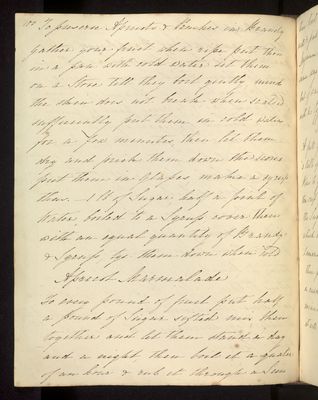 100 To preserve Apricots & Peaches in Brandy
gather your fruit when ripe put them
in a pan with cold water set them
on a Stove till they boil gently mind
the skin does not break when scalded
sufficiently put them in cold water
for a few minutes, then let them
dry and prick them down the sides
put them in Glasses make a syrup
thus. — 1 lb of Sugar half a pint of
Water boiled to a Syrup cover them
with an equal quantity of Brandy
& Syrup tye them down when cold
Apricot Marmalade
To every pound of fruit put half
a pound of Sugar sifted mix them
together and let them stand a day
and a night then boil it a quarter
of an hour & rub it through a